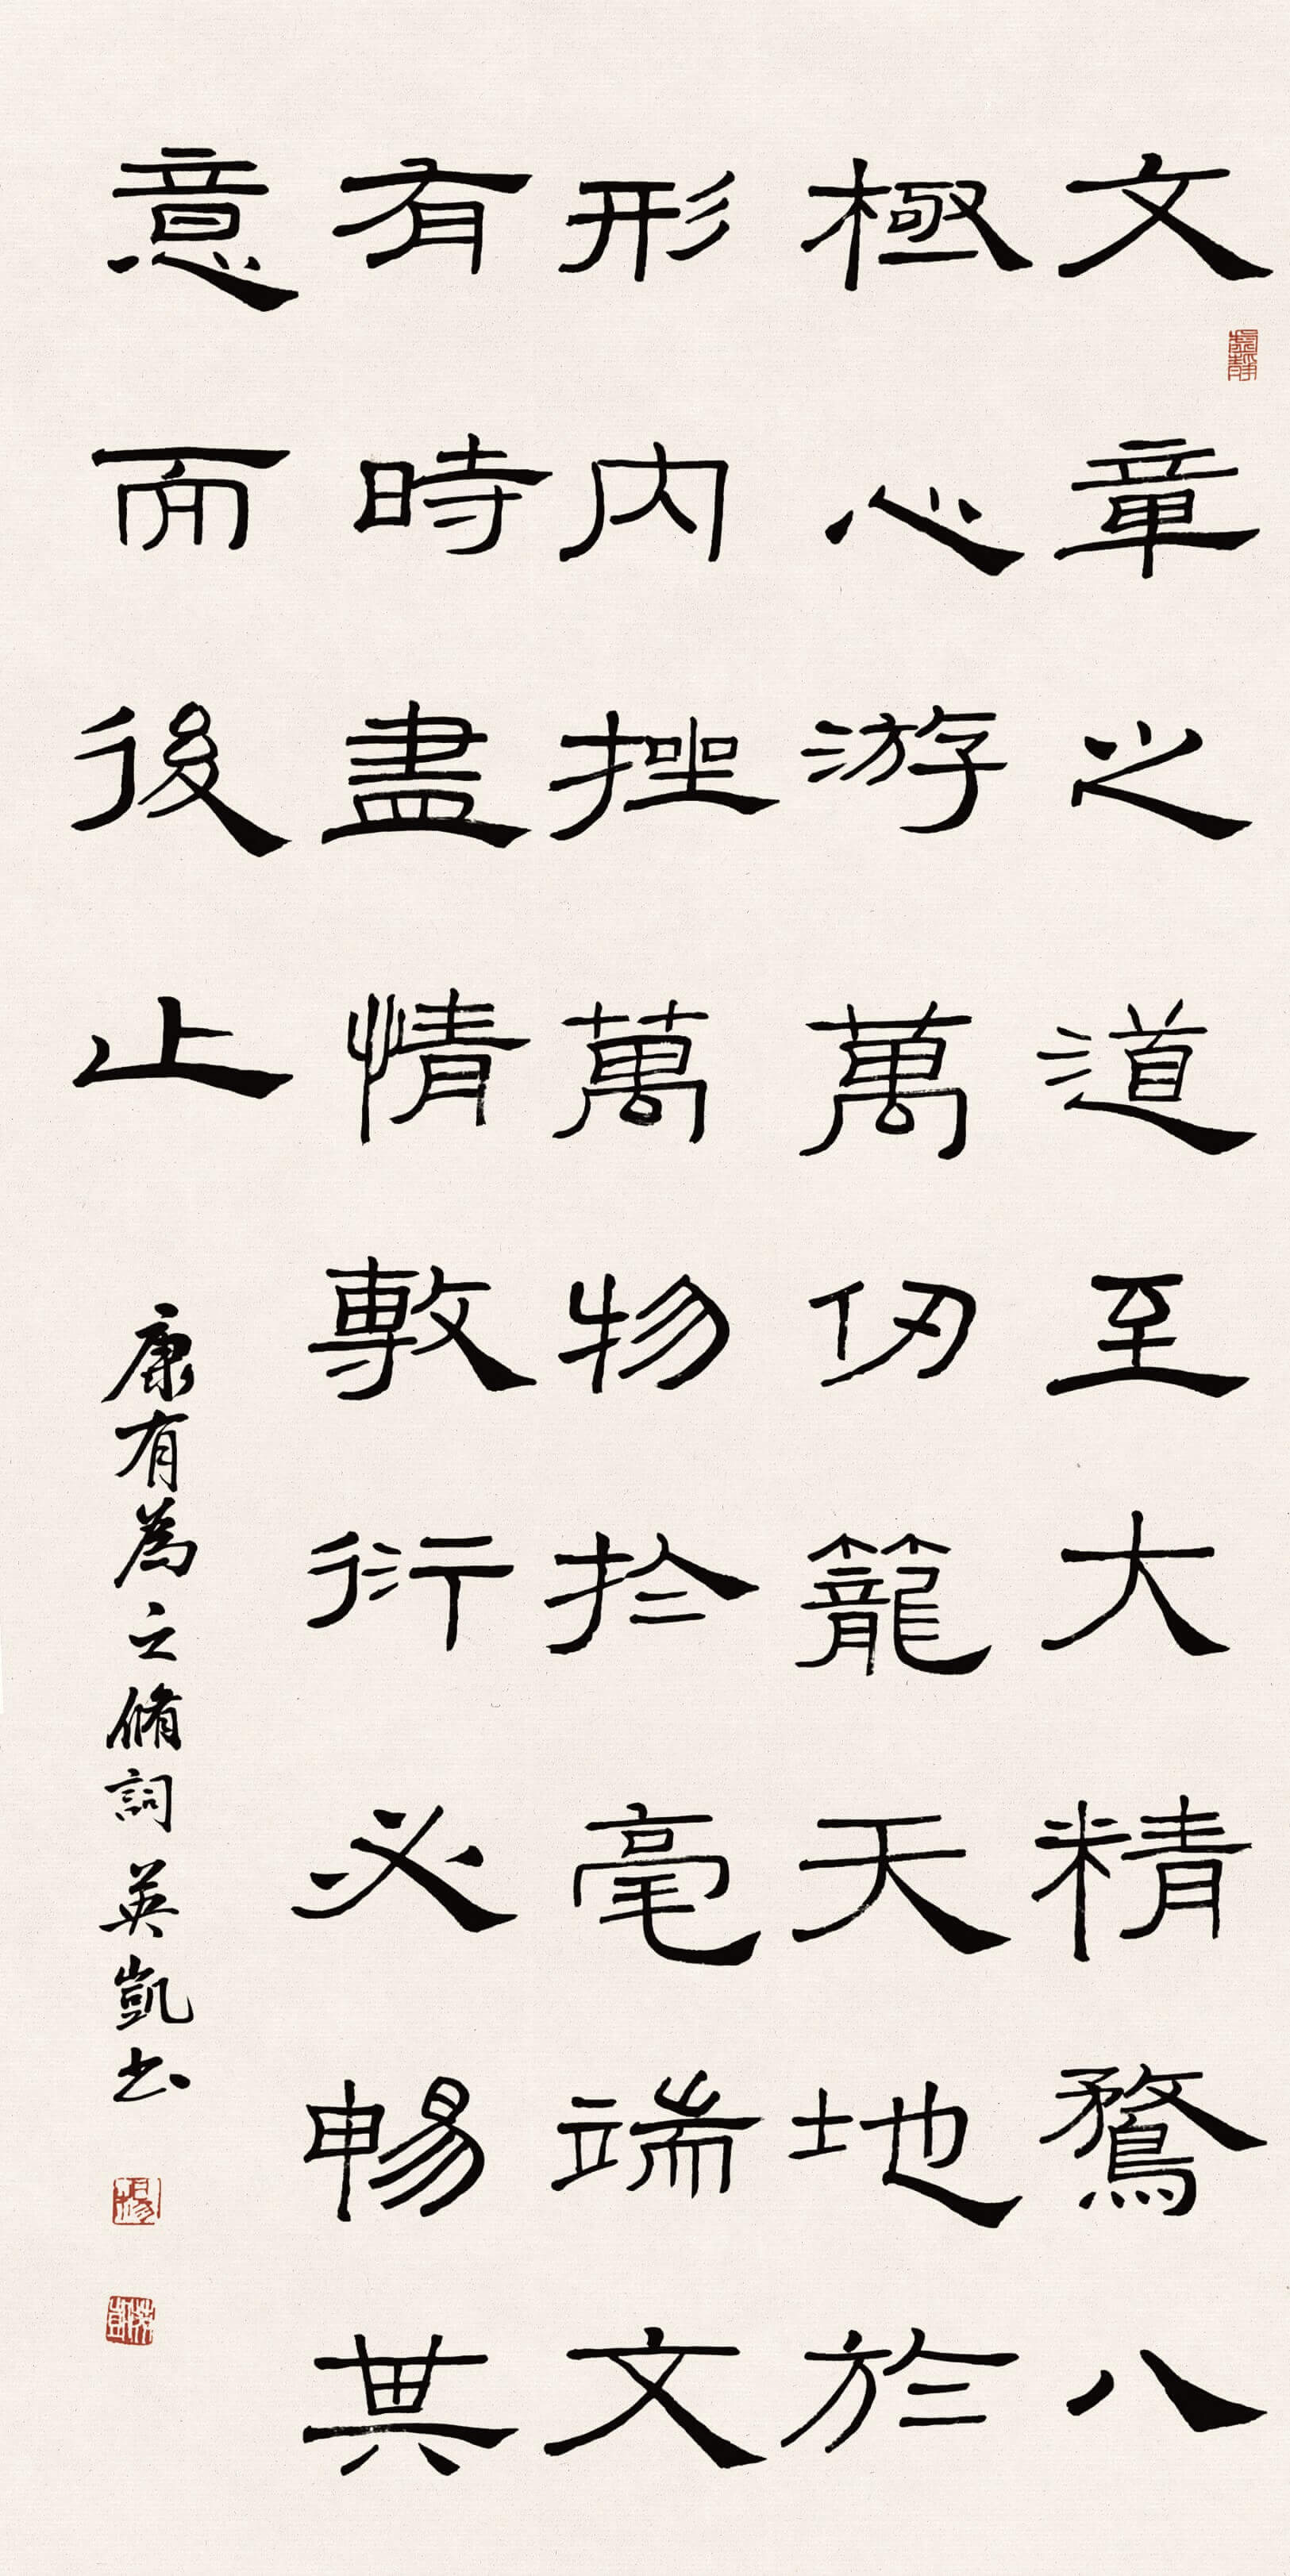 文章之道至大精鶩八
極心游萬仞籠天地於
形內挫萬物於毫端文
有時盡情敷衍必暢其
意而後止
康有為之脩詞 英凱书